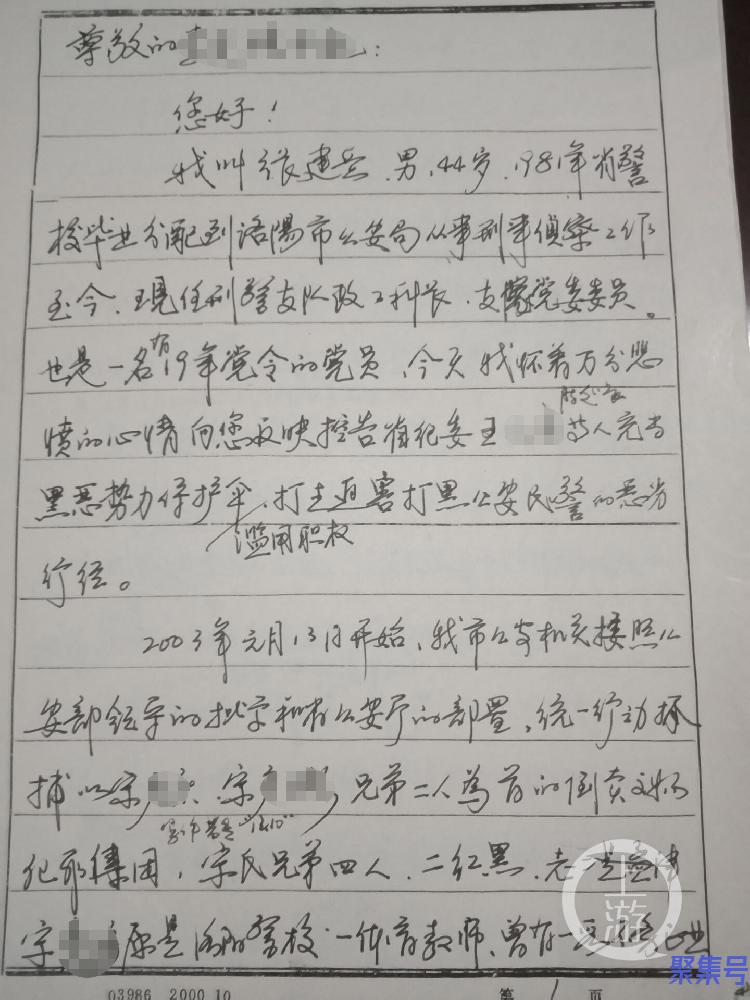 尊敬的
您好!
我叫张建兵、男、44岁、1981年省警
校毕业分配到洛阳市公安局从事刑事侦察工作
至今、现任刑警支队政工科长、支队党委委员。
也是一名有19年党令的党员、今天我怀着万分悲
愤的心情向您反映控告省纪委王 等人充当
黑恶势力保护伞、打击迫害打黑公安民警的恶劣
滥用职权
行径。
2003年元月13日开始、我市公安机关按照公
安部领导的批字和省公安厅的部署、统一行动抓
捕以宋 宋 兄弟二人为首的倒卖文物
犯罪集团,宋氏兄弟四人、二红黑、老
宋 原是洛阳警校一体育教师、曾有一
上游
聚集号
03986 2000.10
第 1 页